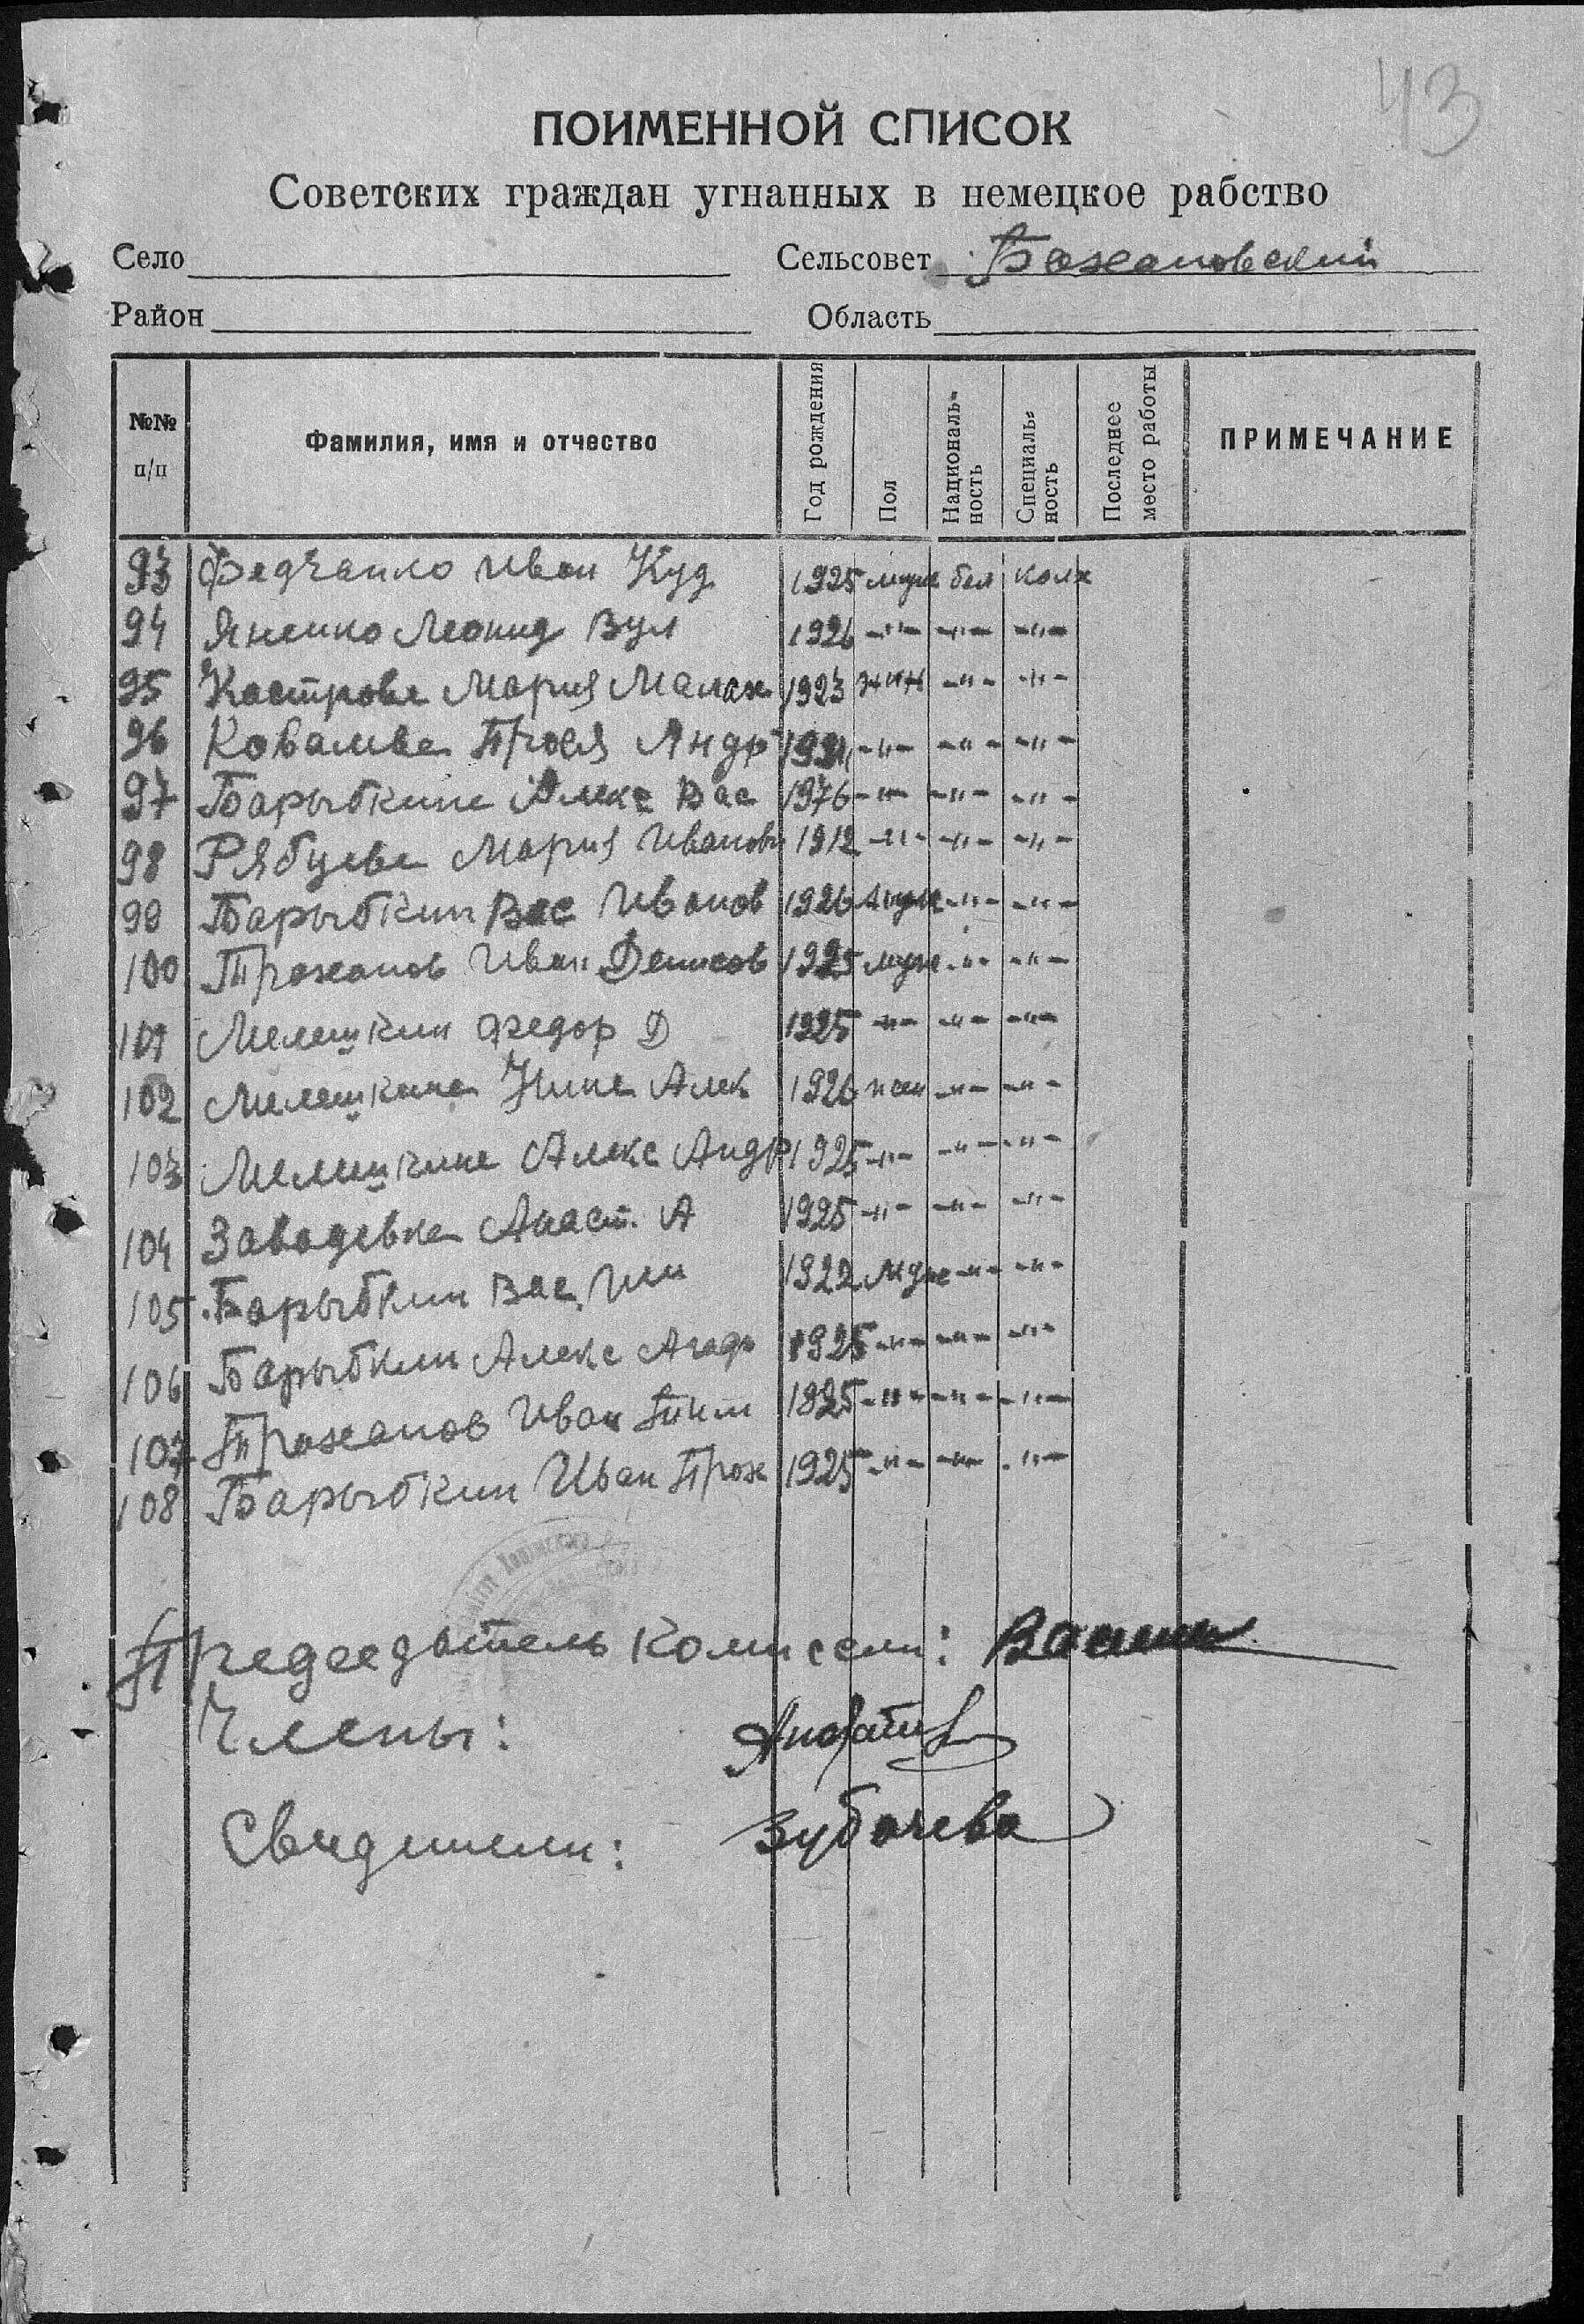 43
ПОИМЕННОЙ СПИСОК
Советских граждан угнанных в немецкое рабство
Село Сельсовет Бахановский
Район Область
№№ п/п Фамилия, имя и отчество Год рождения Пол Националь-ность Специаль-ность Последнее место работы ПРИМЕЧАНИЕ
93 Федчанко Иван Куд 1925 муж бел колх
94 Яненко Леонид Вул 1926 -"- -"- -"-
95 Кастрова Мария Малах 1923 жин -"- -"-
96 Ковалева Андр -"- -"- -"-
97 Барыбкина Алекс Вас -"- -"- -"-
98 Рябцева Мария Иванов 1912 -"- -"- -"-
99 Барыбкин Вас Иванов 1926 муж -"- -"-
100 Праханов Иван Денисов 1925 муж -"- -"-
101 Мелешкин Федор Д 1925 -"- -"- -"-
102 Мелешкина Нина Алек 1926 жен -"- -"-
103 Мелешкина Алекс Андр 1925 -"- -"- -"-
104 Анаст. А 1925 -"- -"- -"-
105 Барыбкин Вас. 1922 муж -"- -"-
106 Барыбкин Алекс 1925 -"- -"- -"-
107 Праханов Иван Пим 1925 -"- -"- -"-
108 Барыбкин Иван Прох 1925 -"- -"- -"-
Председатель комиссии:
Члены:
Свидители: Зубачева